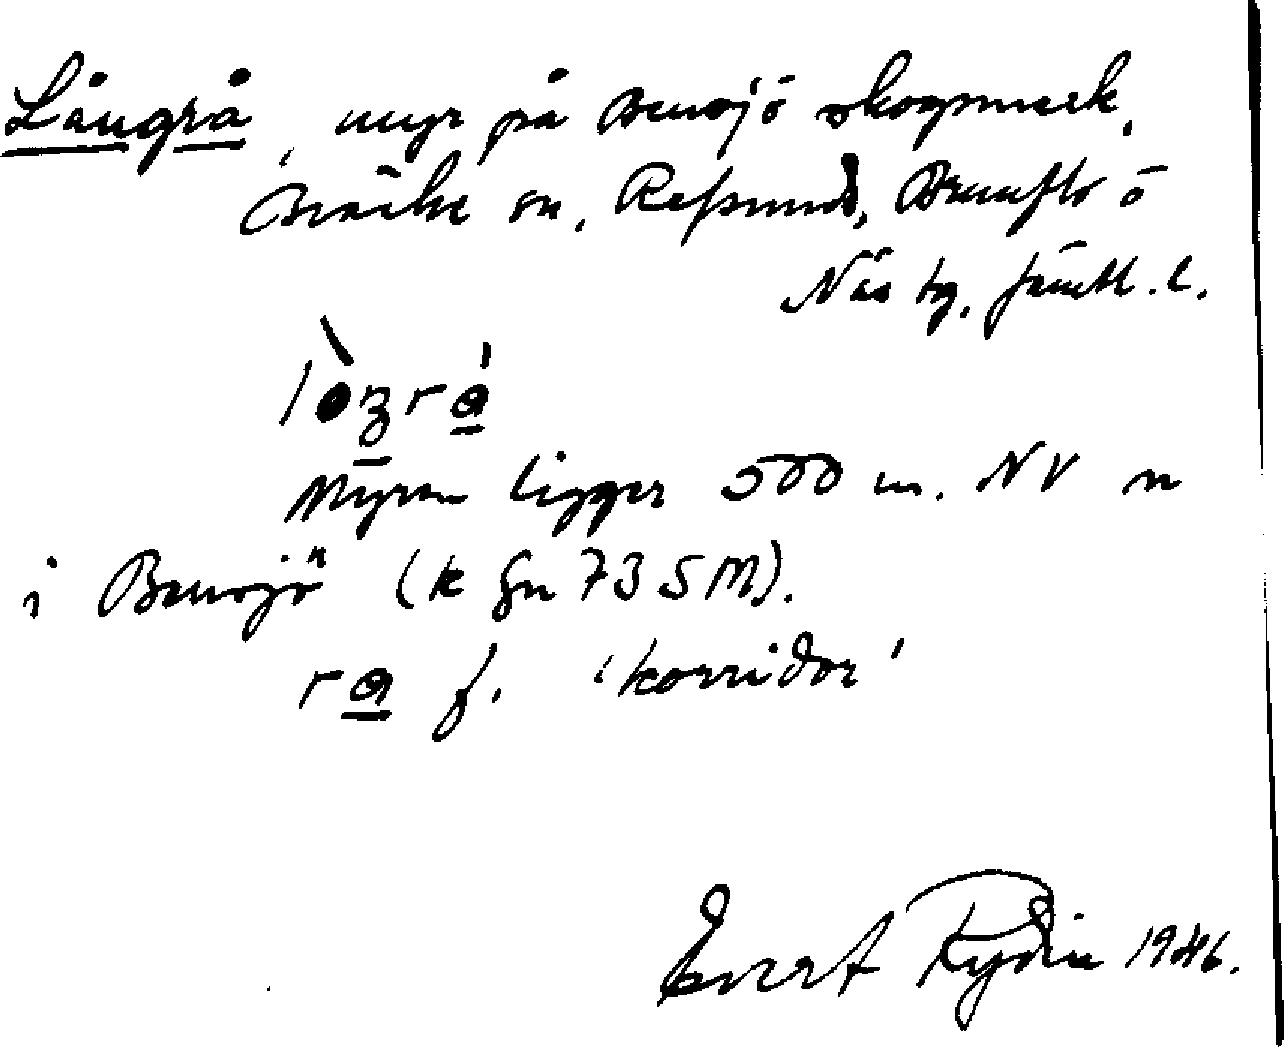 Långrå, myr på Bensjö skogsmark,
Bräcke sn, Refsunds, Brunflo o
Näs tg. Jämtl. l.
Myren ligger 500 m. NV n
i Bensjö (k gn 735 M).
ra f. 'korridor'
Evert Rydin 1946.